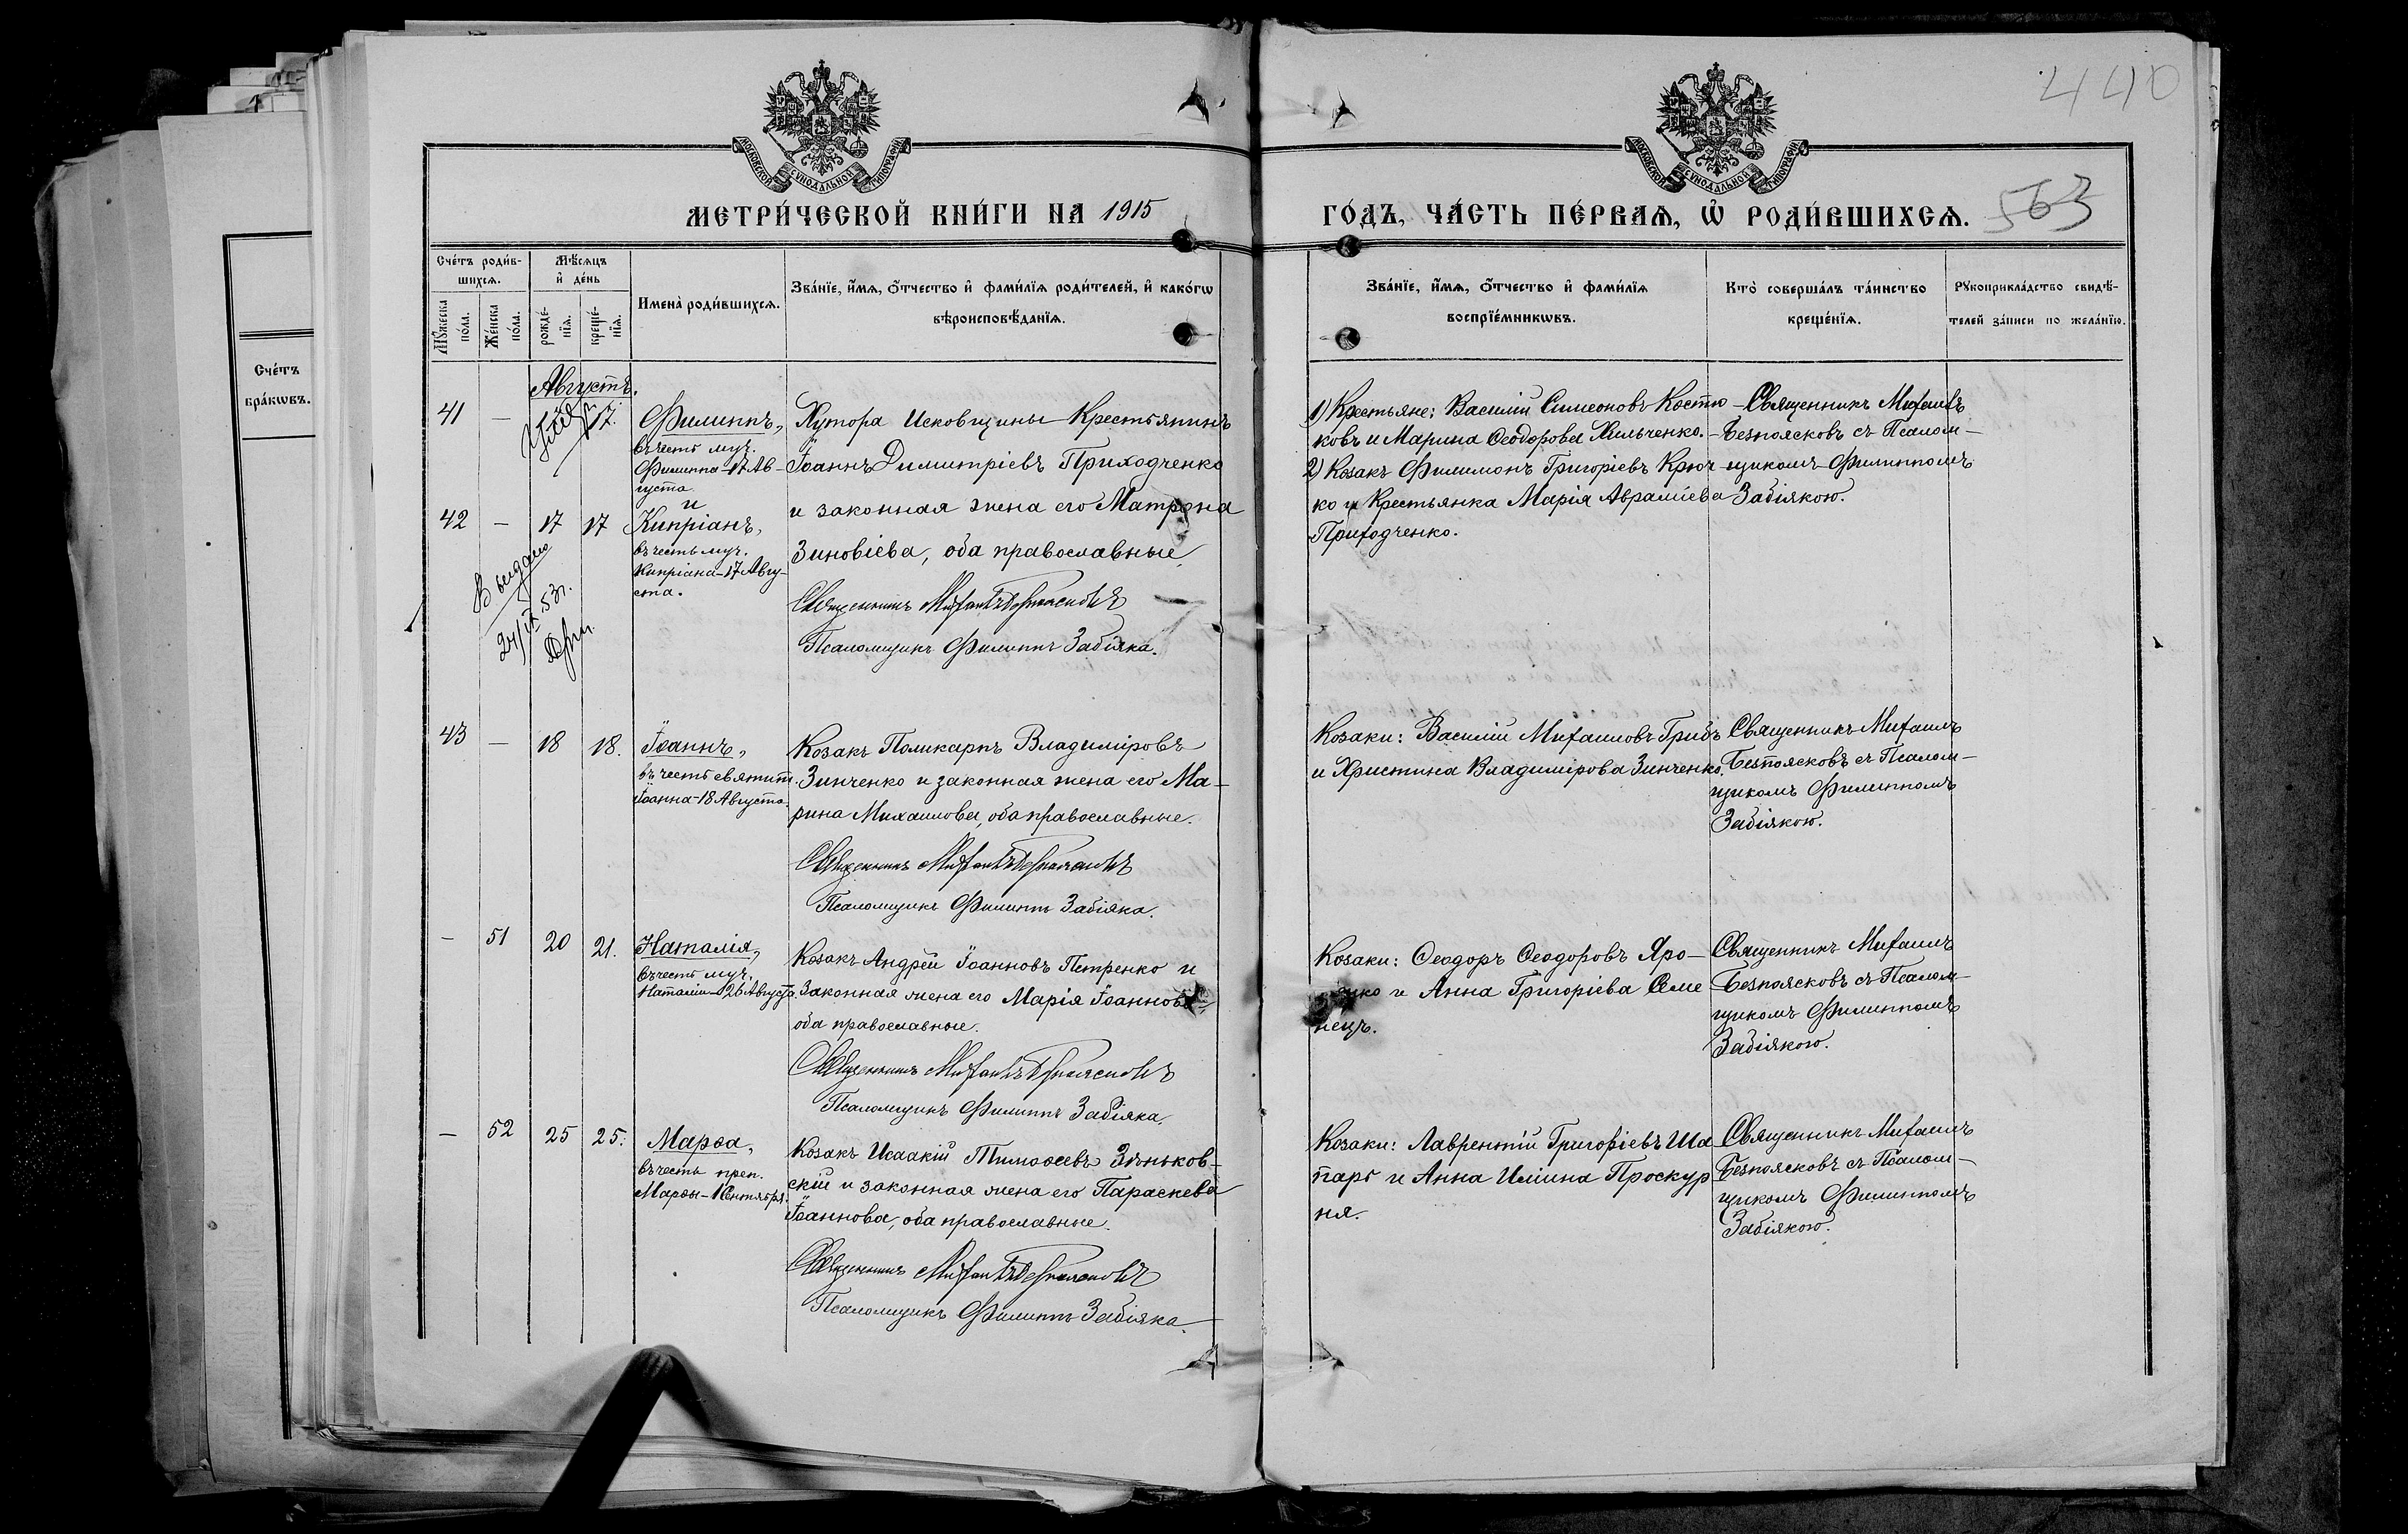 440
МОСКОВСКОЙ СУНОДАЛЬНОЙ ТИПОГРАФІИ
МОСКОВСКОЙ СУНОДАЛЬНОЙ ТИПОГРАФІИ
МЕТРИ́ЧЕСКОЙ КНИ́ГИ НА 1915
ГО́ДЪ, ЧА́СТЬ ПЕ́РВАѦ, Ѡ РОДИ́ВШИХСѦ. 563
Сче́тъ роди́в-
шихсѧ.
Мꙋ́жеска
по́ла.
Же́нска
по́ла.
Мѣ́сѧцъ
и҆ де́нь
рожде́-
нїѧ.
креще́-
нїѧ.
Имена̀ роди́вшихсѧ.
Зва́нїе, и҆́мѧ, ѻ҆́тчество и҆ фами́лїѧ роди́телей, и҆ како́гѡ
вѣроисповѣ́данїѧ.
Зва́нїе, и҆́мѧ, ѻ҆́тчество и҆ фами́лїѧ
воспрїе́мникѡвъ.
Кто̀ соверша́лъ та́инство
креще́нїѧ.
Рꙋкоприкла́дство свидѣ́-
телей за́писи по жела́нїю.
Сче́тъ
бра́кѡвъ.
Августъ.
41 — 17.
Филиппъ,
въ честь муч.
Филиппа-17 Ав-
густа
и
42 — 17 17
Кипріанъ,
въ честь муч.
Кипріана-17 Авгу-
ста.
Выдано
24/IX 53г.
Хутора Исковщины Крестьянинъ
Іоаннъ Димитріевъ Приходченко
и законная жена его Матрона
Зиновіева, оба православные,
Священникъ Михаилъ Безпоясковъ
Псаломщикъ Филиппъ Забіяка.
1) Крестьяне: Василій Симеоновъ Костю-
ковъ и Марина Ѳеодорова Хильченко.
2) Козакъ Филимонъ Григоріевъ Крюч-
ко и Крестьянка Марія Авраміева
Приходченко.
Священникъ Михаилъ
Безпоясковъ съ Псалом-
щикомъ Филиппомъ
Забіякою.
43 — 18 18.
Іоаннъ,
въ честь святит.
Іоанна-18 Августа.
Козакъ Поликарпъ Владиміровъ
Зинченко и законная жена его Ма-
рина Михаилова, оба православные.
Священникъ Михаилъ Безпоясковъ
Псаломщикъ Филиппъ Забіяка.
Козаки: Василій Михаиловъ Грибъ
и Христина Владимірова Зинченко.
Священникъ Михаилъ
Безпоясковъ съ Псалом-
щикомъ Филиппомъ
Забіякою.
— 51 20 21.
Наталія,
въ честь муч.
Наталіи-26 Августа.
Козакъ Андрей Іоанновъ Петренко и
законная жена его Марія Іоаннова
оба православные.
Священникъ Михаилъ Безпоясковъ
Псаломщикъ Филиппъ Забіяка.
Козаки: Ѳеодоръ Ѳеодоровъ Яро-
и Анна Григоріева Семе
нецъ.
Священникъ Михаилъ
Безпоясковъ съ Псалом-
щикомъ Филиппомъ
Забіякою.
— 52 25 25.
Марѳа,
въ честь преп.
Марѳы-1 Сентября.
Козакъ Исаакій Тимоѳеевъ Зѣньков-
скій и законная жена его Параскева
Іоаннова, оба православные.
Священникъ Михаилъ Безпоясковъ
Псаломщикъ Филиппъ Забіяка.
Козаки: Лаврентій Григоріевъ Ша
парь и Анна Иліина Проскур
ня.
Священникъ Михаилъ
Безпоясковъ съ Псалом-
щикомъ Филиппомъ
Забіякою.